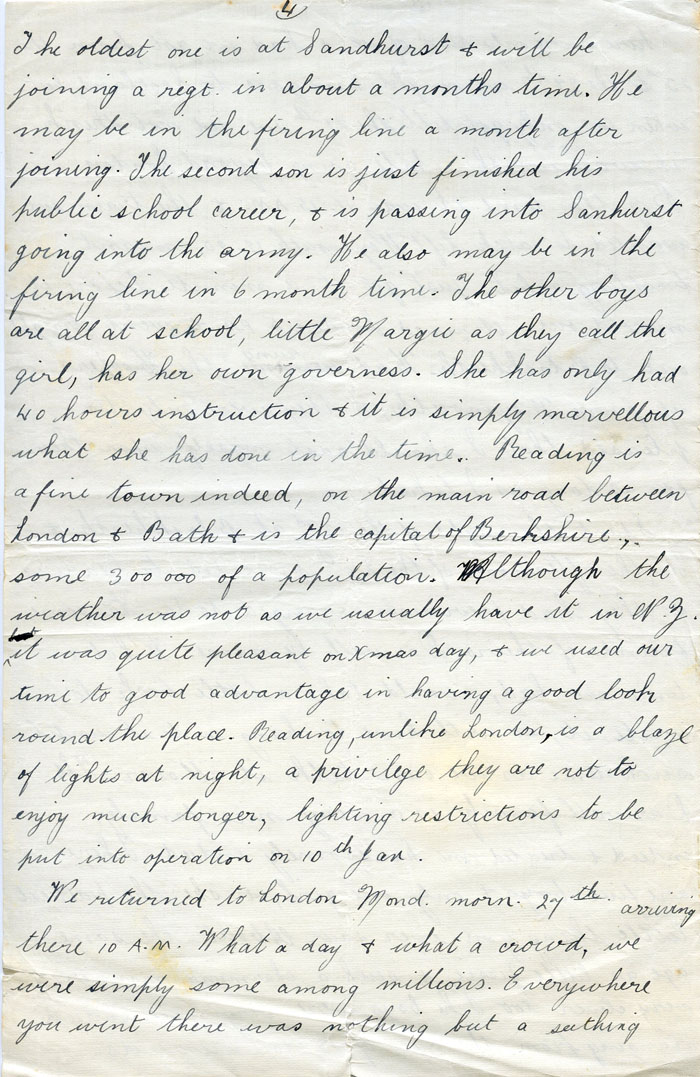 4
The oldest one is at Sandhurst & will be
joining a regt. in about a months time. He
may be in the firing line a month after
joining. The second son is just finished his
public school career, & is passing into Sanhurst
going into the army. He also may be in the
firing line in 6 month time. The other boys
are all at school, little Margie as they call the
girl, has her own governess. She has only had
40 hours instruction & it is simply marvellous
what she has done in the time. Reading is
a fine town indeed, on the main road between
London & Bath & is the capital of Berkshire.,.
some 300000 of a population. Although the
weather was not as we usually have it in N.Z.
it was quite pleasant on Xmas day, & we used our
time to good advantage in having a good look
round the place. Reading, unlike London, is a blaze
of lights at night, a privilege they are not to
enjoy much longer, lighting restrictions to be
put into operation on 10th Jan.
We returned to London Mond. morn. 27th. arriving
there 10 A.M. What a day & what a crowd, we
were simply some among millions. Everywhere
you went there was nothing but a seething